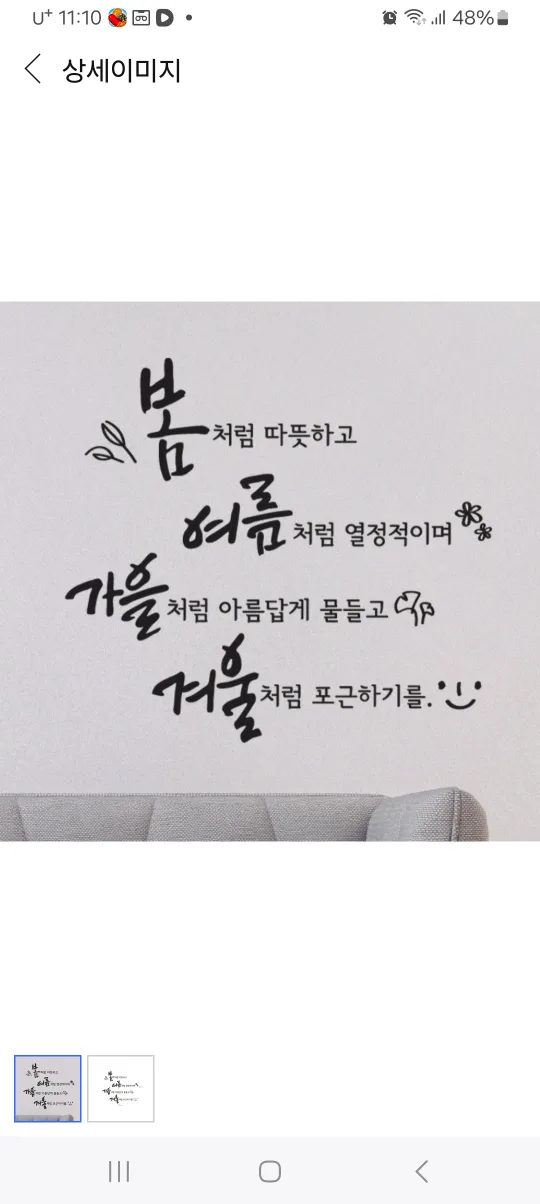 U+ 11:10 48%
상세이미지
봄처럼 따뜻하고
여름처럼 열정적이며
가을처럼 아름답게 물들고
겨울처럼 포근하기를.